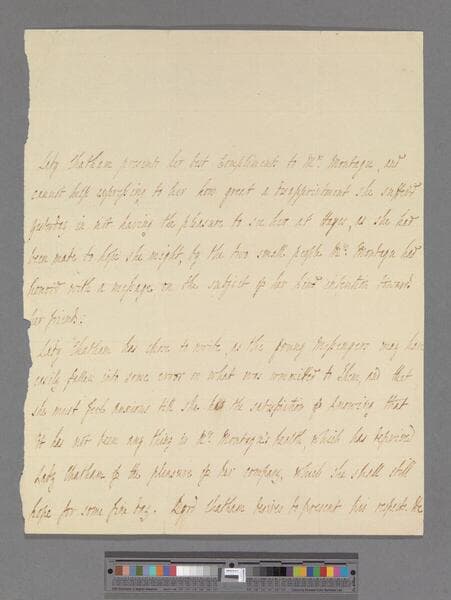 Lady Chatham presents her best Compliments to Mrs. Montagu, and
cannot help expressing to her how great a disappointment she suffer'd
yesterday in not having the pleasure to see her at Hayes, as she had
been made to hope she might, by the two small people Mrs. Montagu had
honor'd with a message on the subject of her kind intention towards
her friends:
Lady Chatham has chose to write, as the young Messengers may have
easily fallen into some error in what was committed to Them, and that
she must feel anxious till she has the satisfaction of knowing that
it has not been any thing in Mrs. Montagu's health, which has deprived
Lady Chatham of the pleasure of her company, which she shall still
hope for some fine day. Lord Chatham desires to present his respects &c